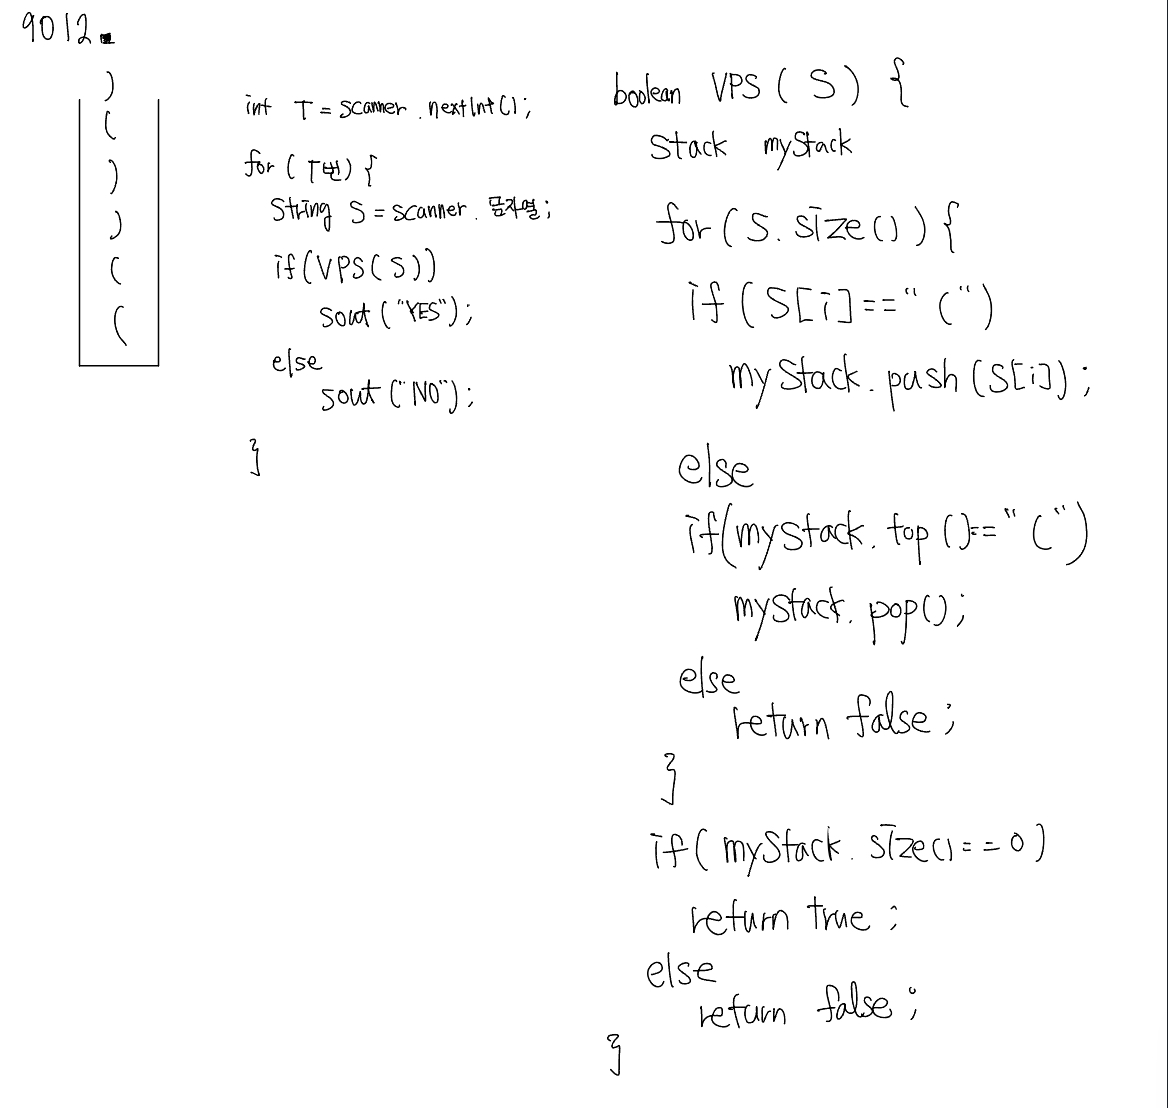 9012.
)
(
)
)
(
(
int T = scanner.nextInt();
for (T번) {
String S = scanner.문자열;
if(VPS(S))
sout("YES");
else
sout("NO");
}
boolean VPS(S) {
Stack myStack
for(S.size()){
if(S[i]=="(")
myStack.push(S[i]);
else
if(myStack.top()=="(")
myStack.pop();
else
return false;
}
if(myStack.size()==0)
return true;
else
return false;
}